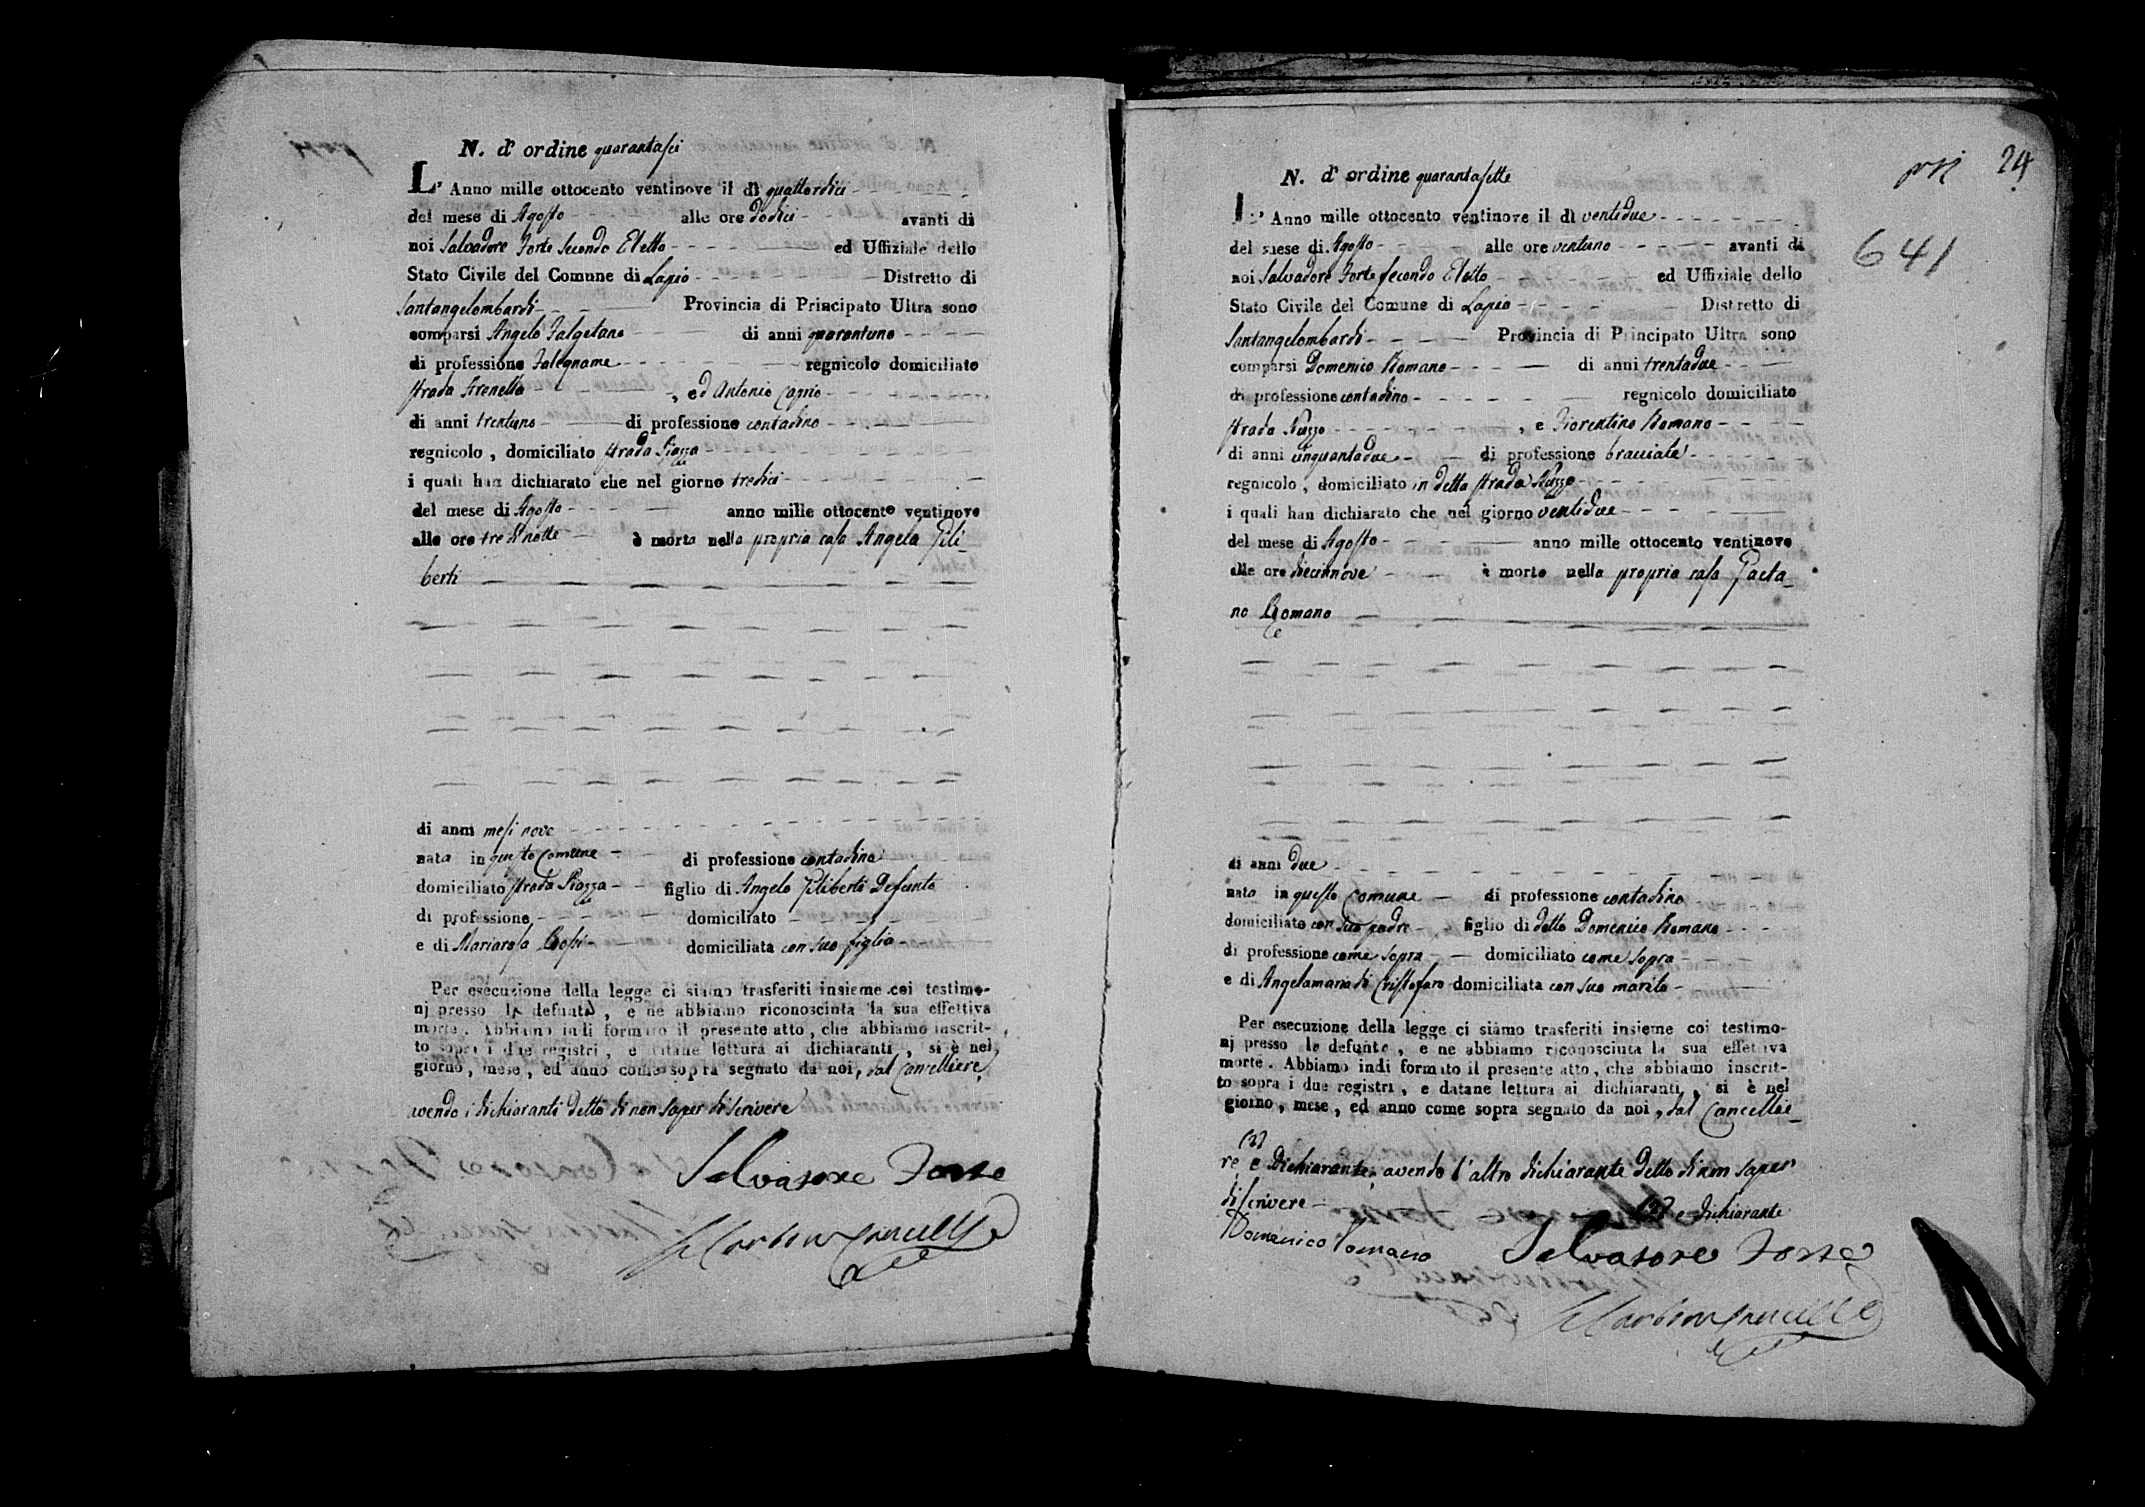 N. d' ordine quarantasei
L' Anno mille ottocento ventinove il dì quattordici
del mese di Agosto alle ore dodici avanti di
noi Salvadore Forte Secondo Eletto ed Uffiziale dello
Stato Civile del Comune di Lapio Distretto di
Santangelombardi Provincia di Principato Ultra sono
comparsi Angelo Falgetano di anni quarantuno
di professione Falegname regnicolo domiciliato
strada Arenella, ed Antonio Caprio
di anni trentuno di professione contadino
regnicolo, domiciliato strada Piazza
i quali han dichiarato che nel giorno tredici
del mese di Agosto anno mille ottocento ventinove
alle ore tre di notte è morta nella propria casa Angela Fili-
berti
di anni mesi nove
nata in questo Comune di professione contadina
domiciliato strada Piazza figlio di Angelo Filiberti Defunto
di professione domiciliato
e di Mariarosa domiciliata con sua figlia
Per esecuzione della legge ci siamo trasferiti insieme coi testimo-
nj presso la defunta, e ne abbiamo riconosciuta la sua effettiva
morte. Abbiamo indi formato il presente atto, che abbiamo inscrit-
to sopra i due registri, e datane lettura ai dichiaranti, si è nel
giorno, mese, ed anno come sopra segnato da noi, dal Cancelliere,
avendo i dichiaranti detto di non saper di scrivere
Salvatore Forte
prsi 24
641
N. d' ordine quarantasette
L' Anno mille ottocento ventinove il dì ventidue
del mese di Agosto alle ore ventuno avanti di
noi Salvadore Forte secondo Eletto ed Uffiziale dello
Stato Civile del Comune di Lapio Distretto di
Santangelombardi Provincia di Principato Ultra sono
comparsi Domenico Romano di anni trentadue
di professione contadino regnicolo domiciliato
strada, e Fiorentino Romano
di anni cinquantadue di professione bracciale
regnicolo, domiciliato in detta strada
i quali han dichiarato che nel giorno ventidue
del mese di Agosto anno mille ottocento ventinove
alle ore diecinnove è morto nella propria casa Gaeta-
no Romano
di anni due
nato in questo Comune di professione contadino
domiciliato con suo padre figlio di detto Domenico Romano
di professione come sopra domiciliato come sopra
e di Angelamaria di Cristofaro domiciliata con suo marito
Per esecuzione della legge ci siamo trasferiti insieme coi testimo-
nj presso lo defunto, e ne abbiamo riconosciuta la sua effettiva
morte. Abbiamo indi formato il presente atto, che abbiamo inscrit-
to sopra i due registri, e datane lettura ai dichiaranti, si è nel
giorno, mese, ed anno come sopra segnato da noi, dal Cancellie-
re e Dichiarante, avendo l' altro dichiarante detto di non saper
di scrivere e dichiarante
Domenico Romano Salvatore Forte